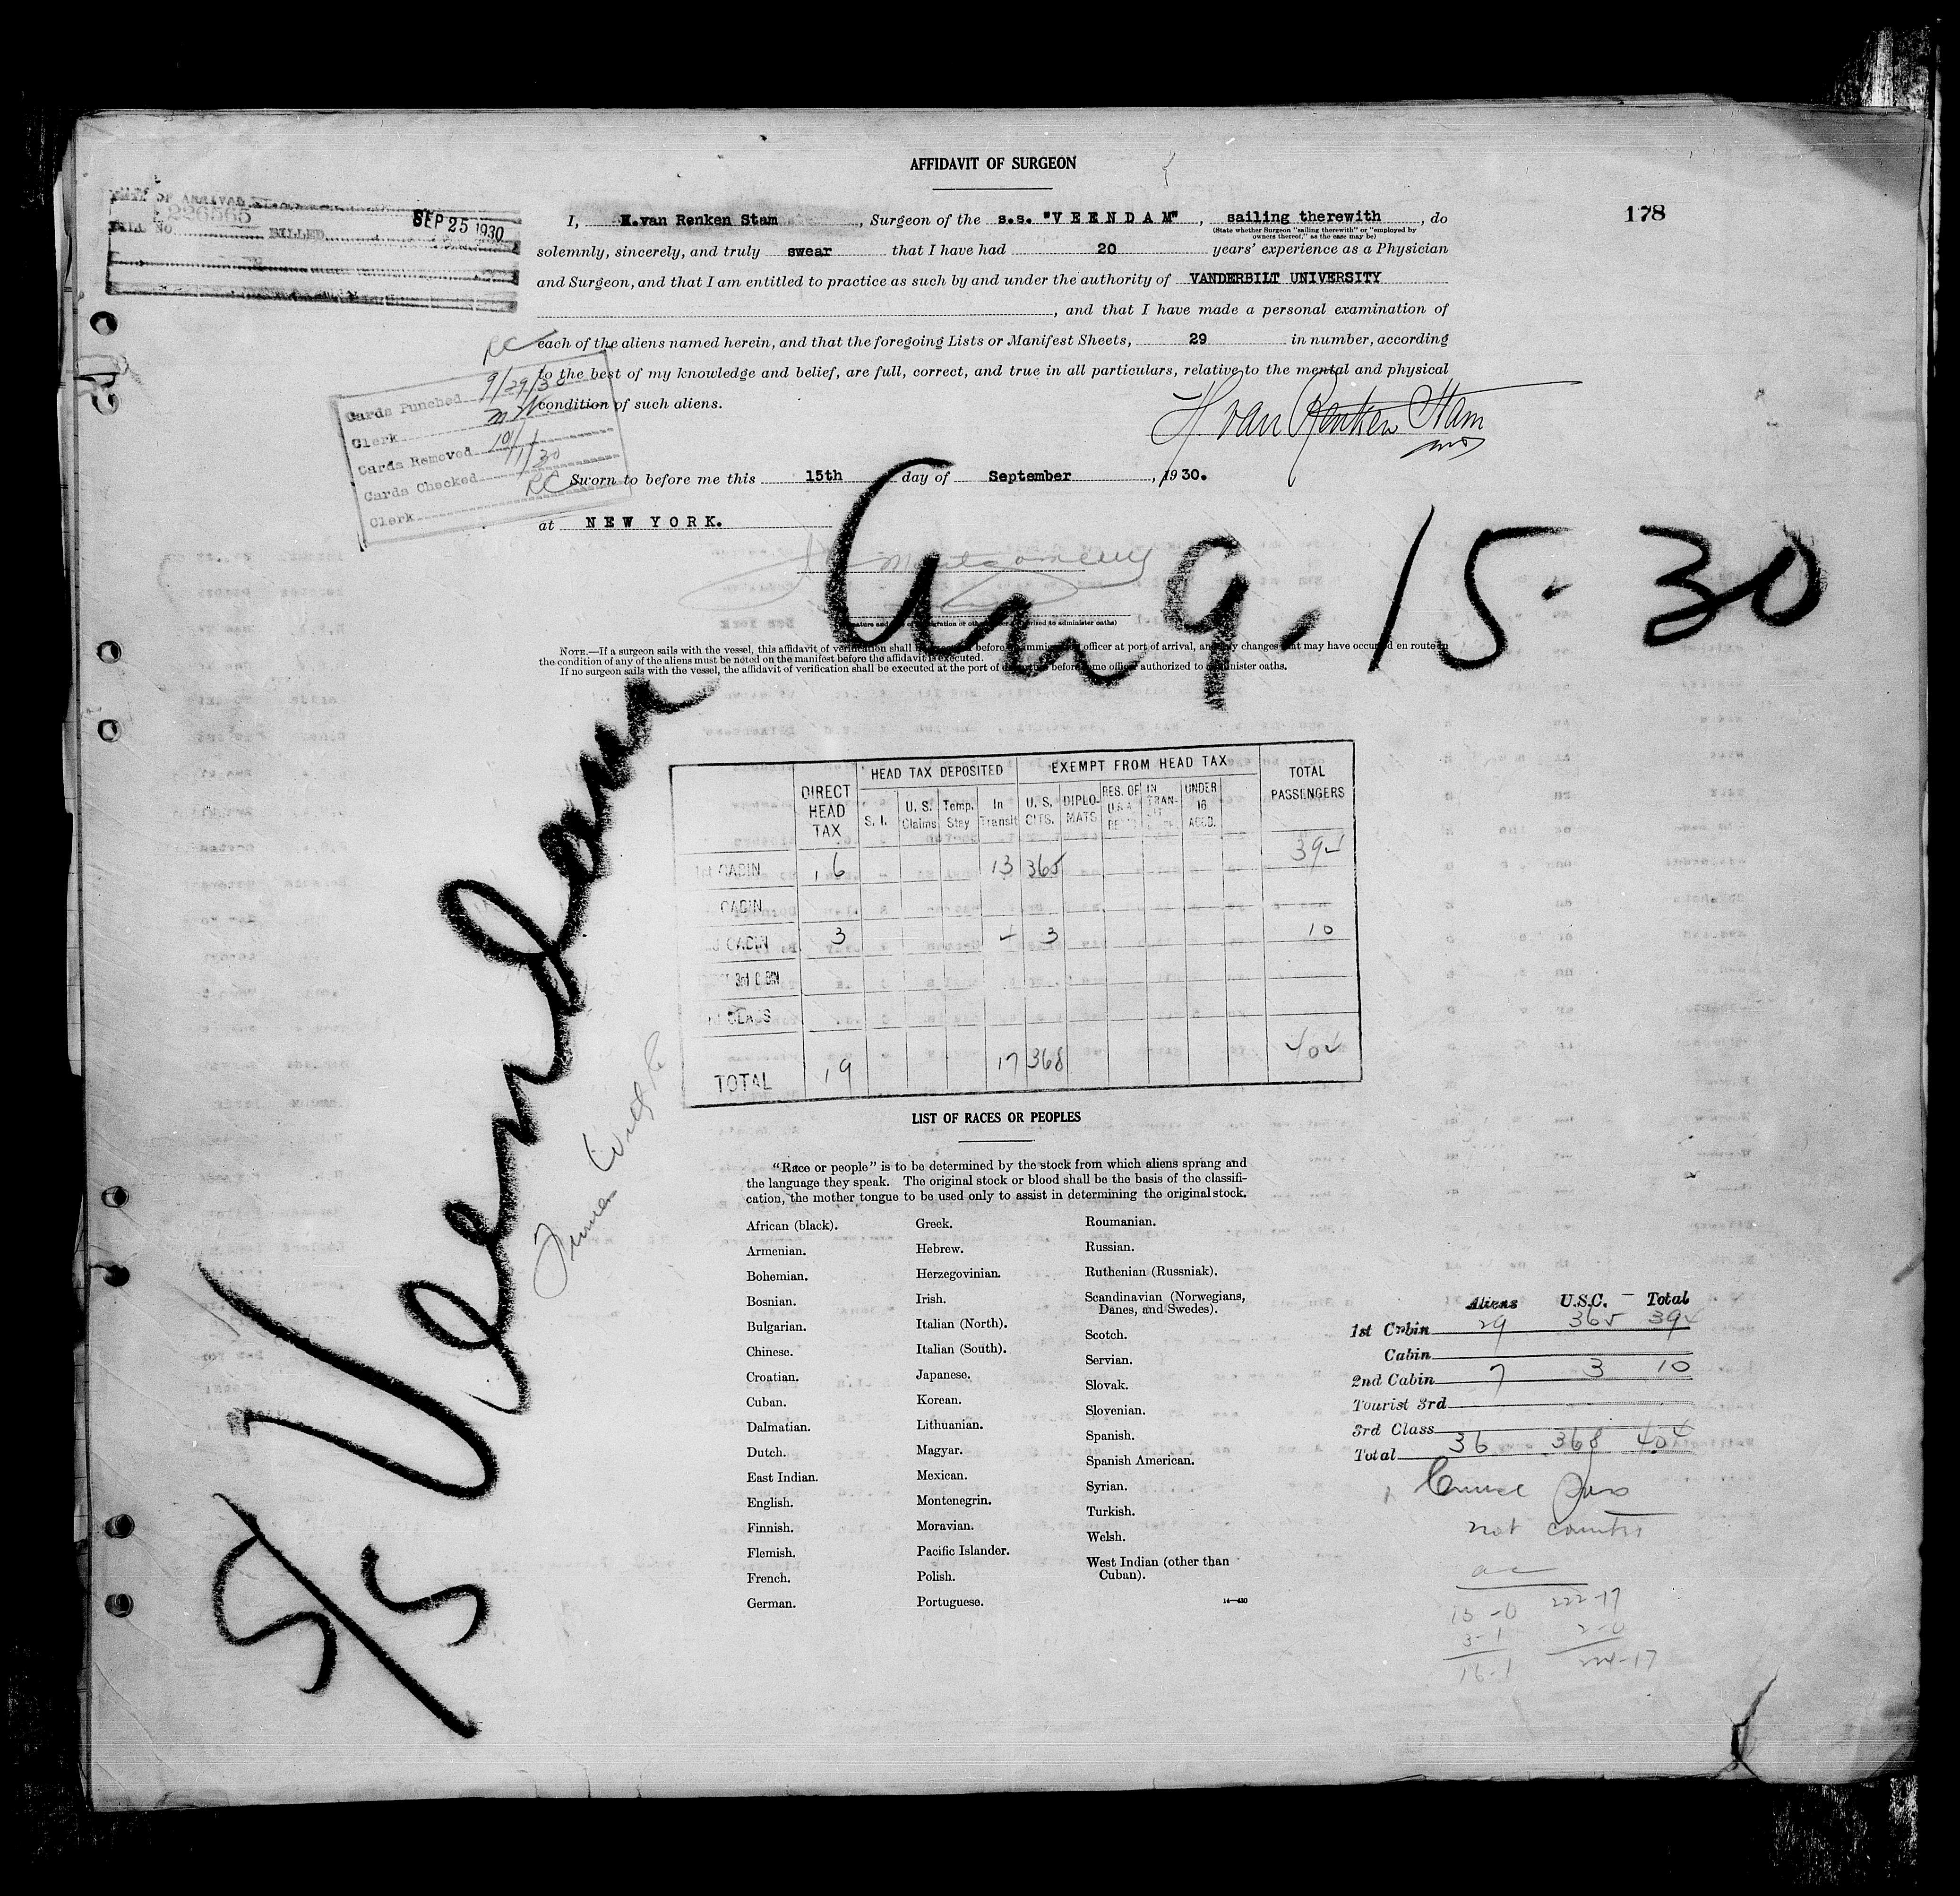 AFFIDAVIT OF SURGEON
178
226565
SEP 25 1930
BILLED
I, H.van Renken Stam, Surgeon of the s.s. "V E E N D A M", sailing therewith, do
(State whether Surgeon "sailing therewith" or "employed by
owners thereof," as the case may be)
solemnly, sincerely, and truly swear that I have had 20 years' experience as a Physician
and Surgeon, and that I am entitled to practice as such by and under the authority of VANDERBILT UNIVERSITY
, and that I have made a personal examination of
each of the aliens named herein, and that the foregoing Lists or Manifest Sheets, 29 in number, according
to the best of my knowledge and belief, are full, correct, and true in all particulars, relative to the mental and physical
condition of such aliens.
H. van Renken Stam
RC
Cards Punched 9/29/30
Clerk
Cards Removed 10/1
Cards Checked 1/30
Clerk RC
Sworn to before me this 15th day of September, 1930.
at N E W Y O R K.
Montgomery
An 9. 15. 30
NOTE.—If a surgeon sails with the vessel, this affidavit of verification shall before immigration officer at port of arrival, and any changes that may have occurred en route in
the condition of any of the aliens must be noted on the manifest before the affidavit is executed.
If no surgeon sails with the vessel, the affidavit of verification shall be executed at the port of departure before some officer authorized to administer oaths.
S/S Veendam
DIRECT HEAD TAX
HEAD TAX DEPOSITED
EXEMPT FROM HEAD TAX
TOTAL PASSENGERS
S. I. U. S. Claims Temp. Stay In Transit U. S. CITS. DIPLOMATS RES. OF U.S.A. IN TRANSIT UNDER 16 ACCD.
1st CABIN 16 13 365 394
CABIN
2nd CABIN 3 4 3 10
3rd CABIN
CLASS
TOTAL 19 17 368 404
LIST OF RACES OR PEOPLES
"Race or people" is to be determined by the stock from which aliens sprang and
the language they speak. The original stock or blood shall be the basis of the classifi-
cation, the mother tongue to be used only to assist in determining the original stock.
African (black).
Armenian.
Bohemian.
Bosnian.
Bulgarian.
Chinese.
Croatian.
Cuban.
Dalmatian.
Dutch.
East Indian.
English.
Finnish.
Flemish.
French.
German.
Greek.
Hebrew.
Herzegovinian.
Irish.
Italian (North).
Italian (South).
Japanese.
Korean.
Lithuanian.
Magyar.
Mexican.
Montenegrin.
Moravian.
Pacific Islander.
Polish.
Portuguese.
Roumanian.
Russian.
Ruthenian (Russniak).
Scandinavian (Norwegians,
Danes, and Swedes).
Scotch.
Servian.
Slovak.
Slovenian.
Spanish.
Spanish American.
Syrian.
Turkish.
Welsh.
West Indian (other than
Cuban).
14—430
Aliens U.S.C. Total
1st Cabin 29 365 394
Cabin
2nd Cabin 7 3 10
Tourist 3rd
3rd Class
Total 36 368 404
Cruise Pass
not counted
13-0 222-17
3-1 2-0
16-1 224-17